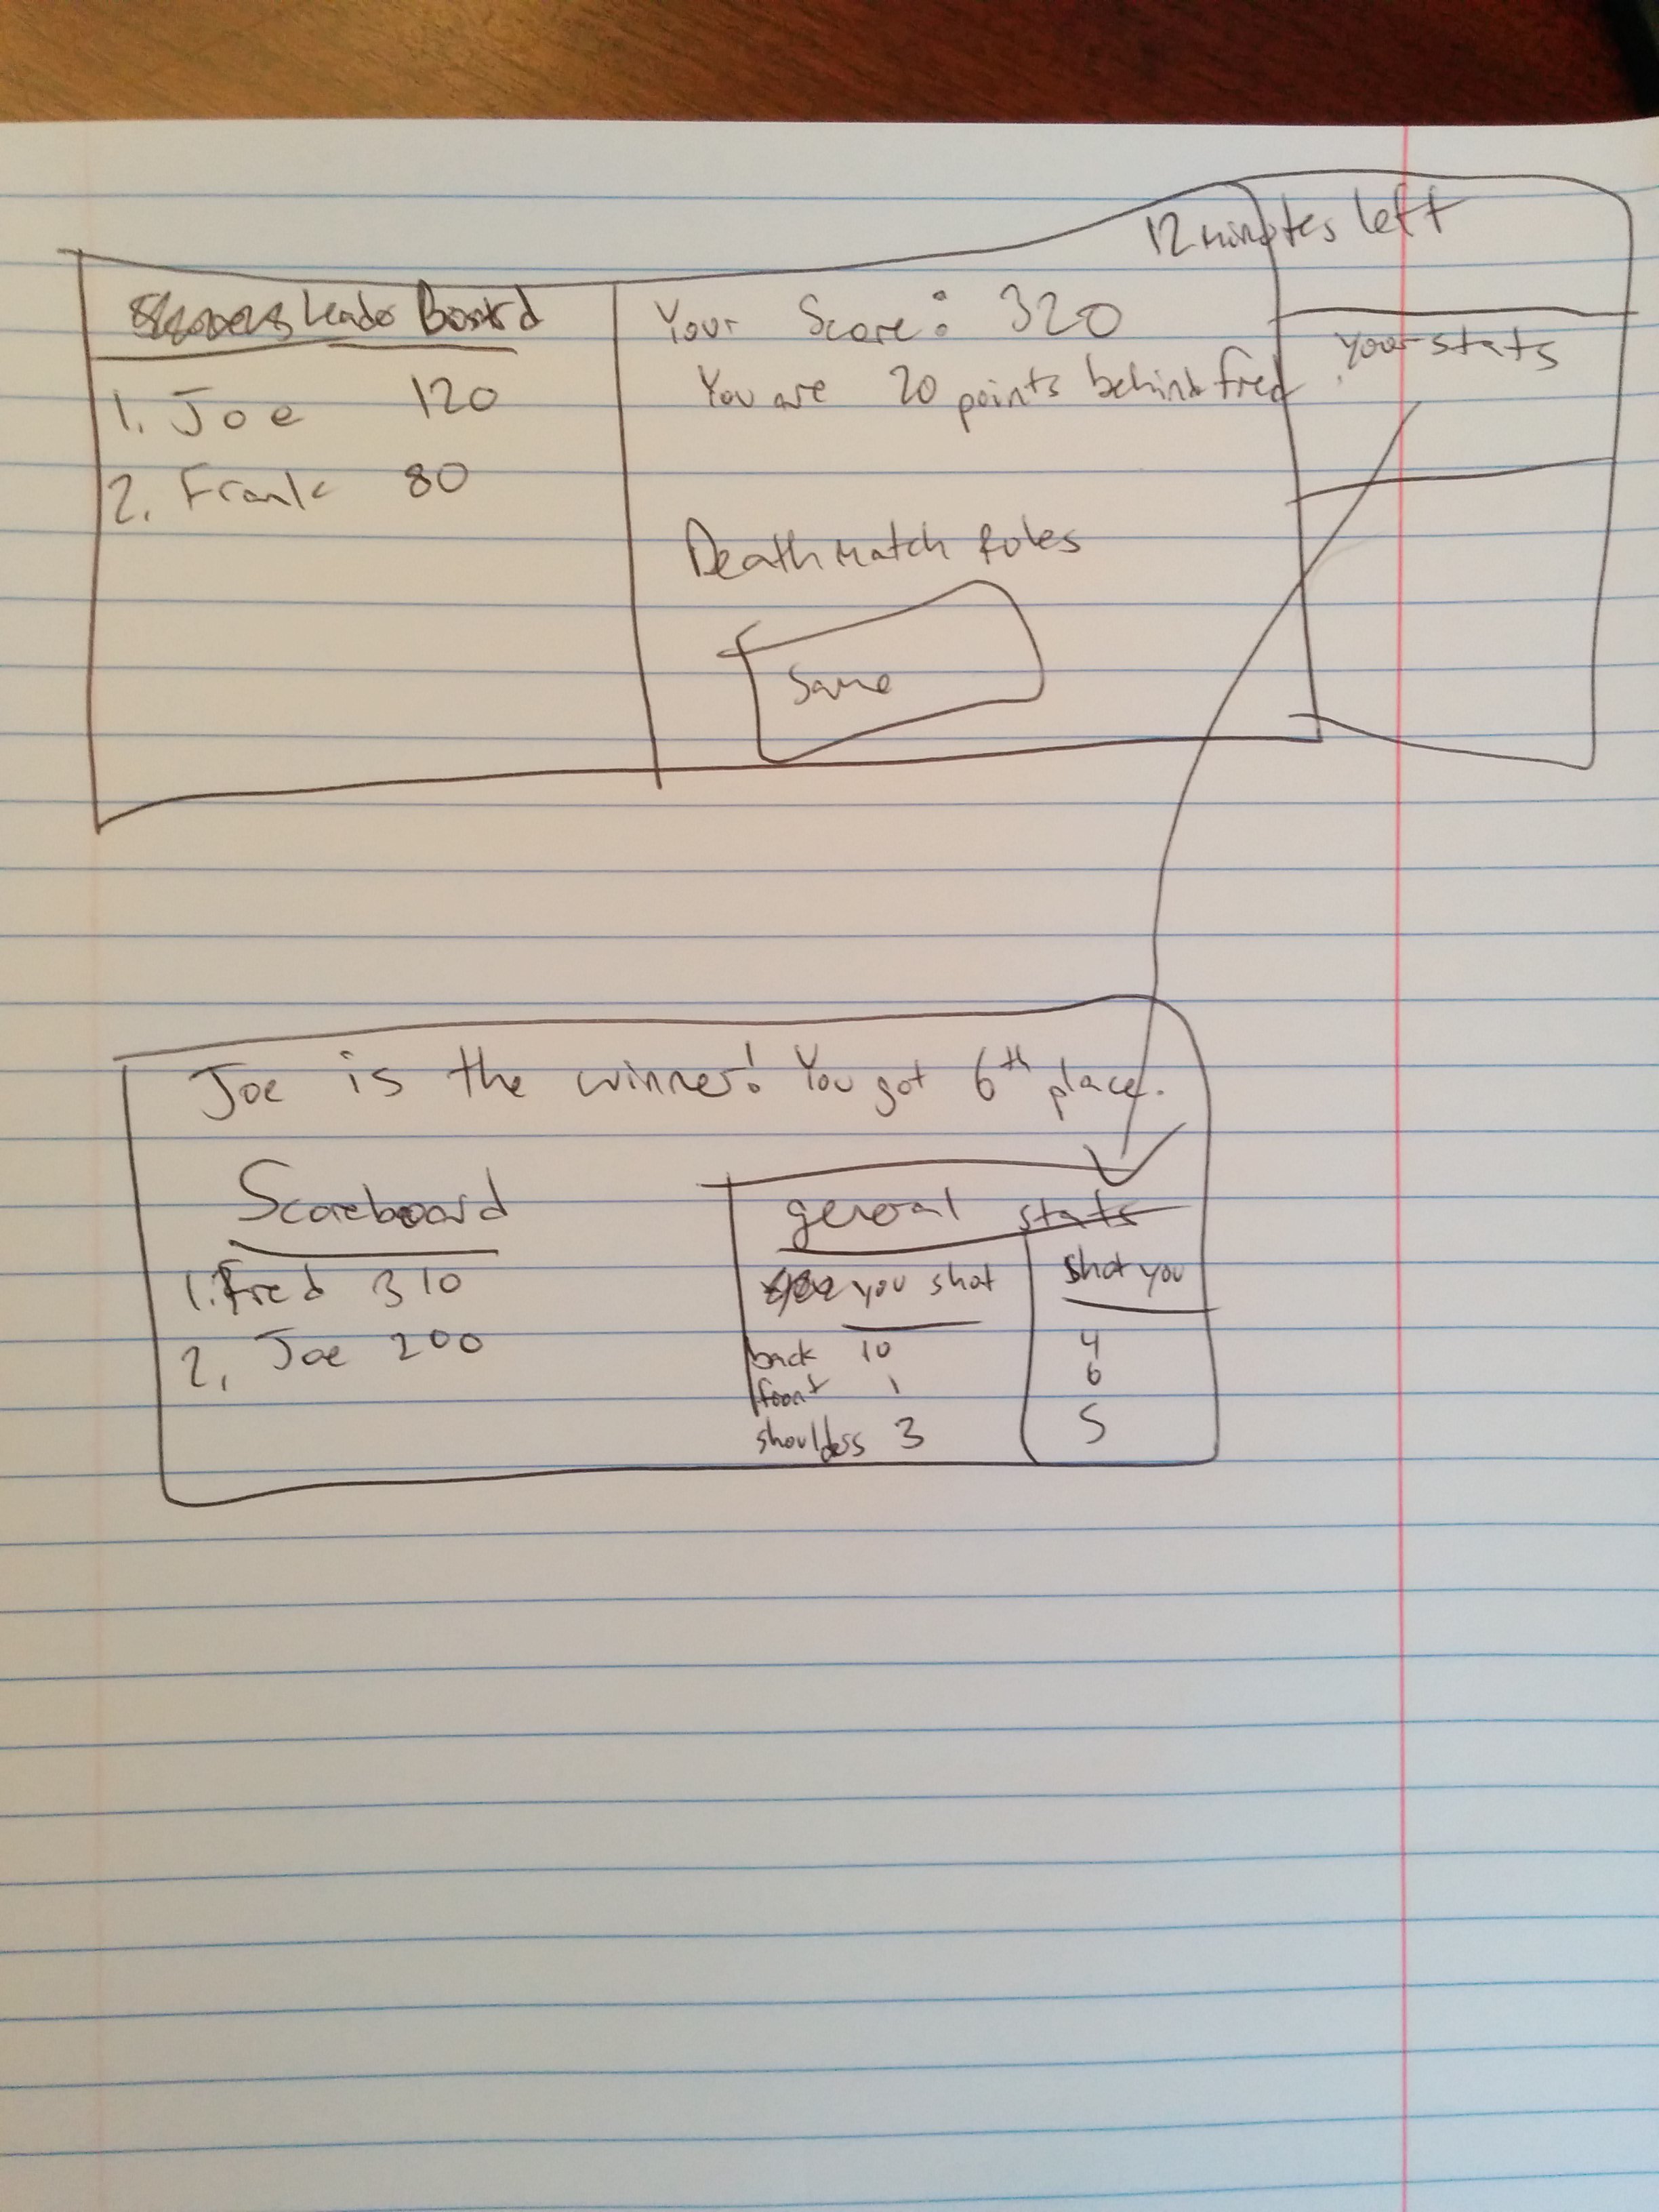 12 minutes left
Leader Board
1. Joe 120
2. Frank 80
Your Score: 320
You are 20 points behind fred
Deathmatch Rules
Same
your stats
Joe is the winner! You got 6th place.
Scoreboard
1. Fred 310
2. Joe 200
general stats
you shot
shot you
back 10 4
front 1 6
shoulders 3 5